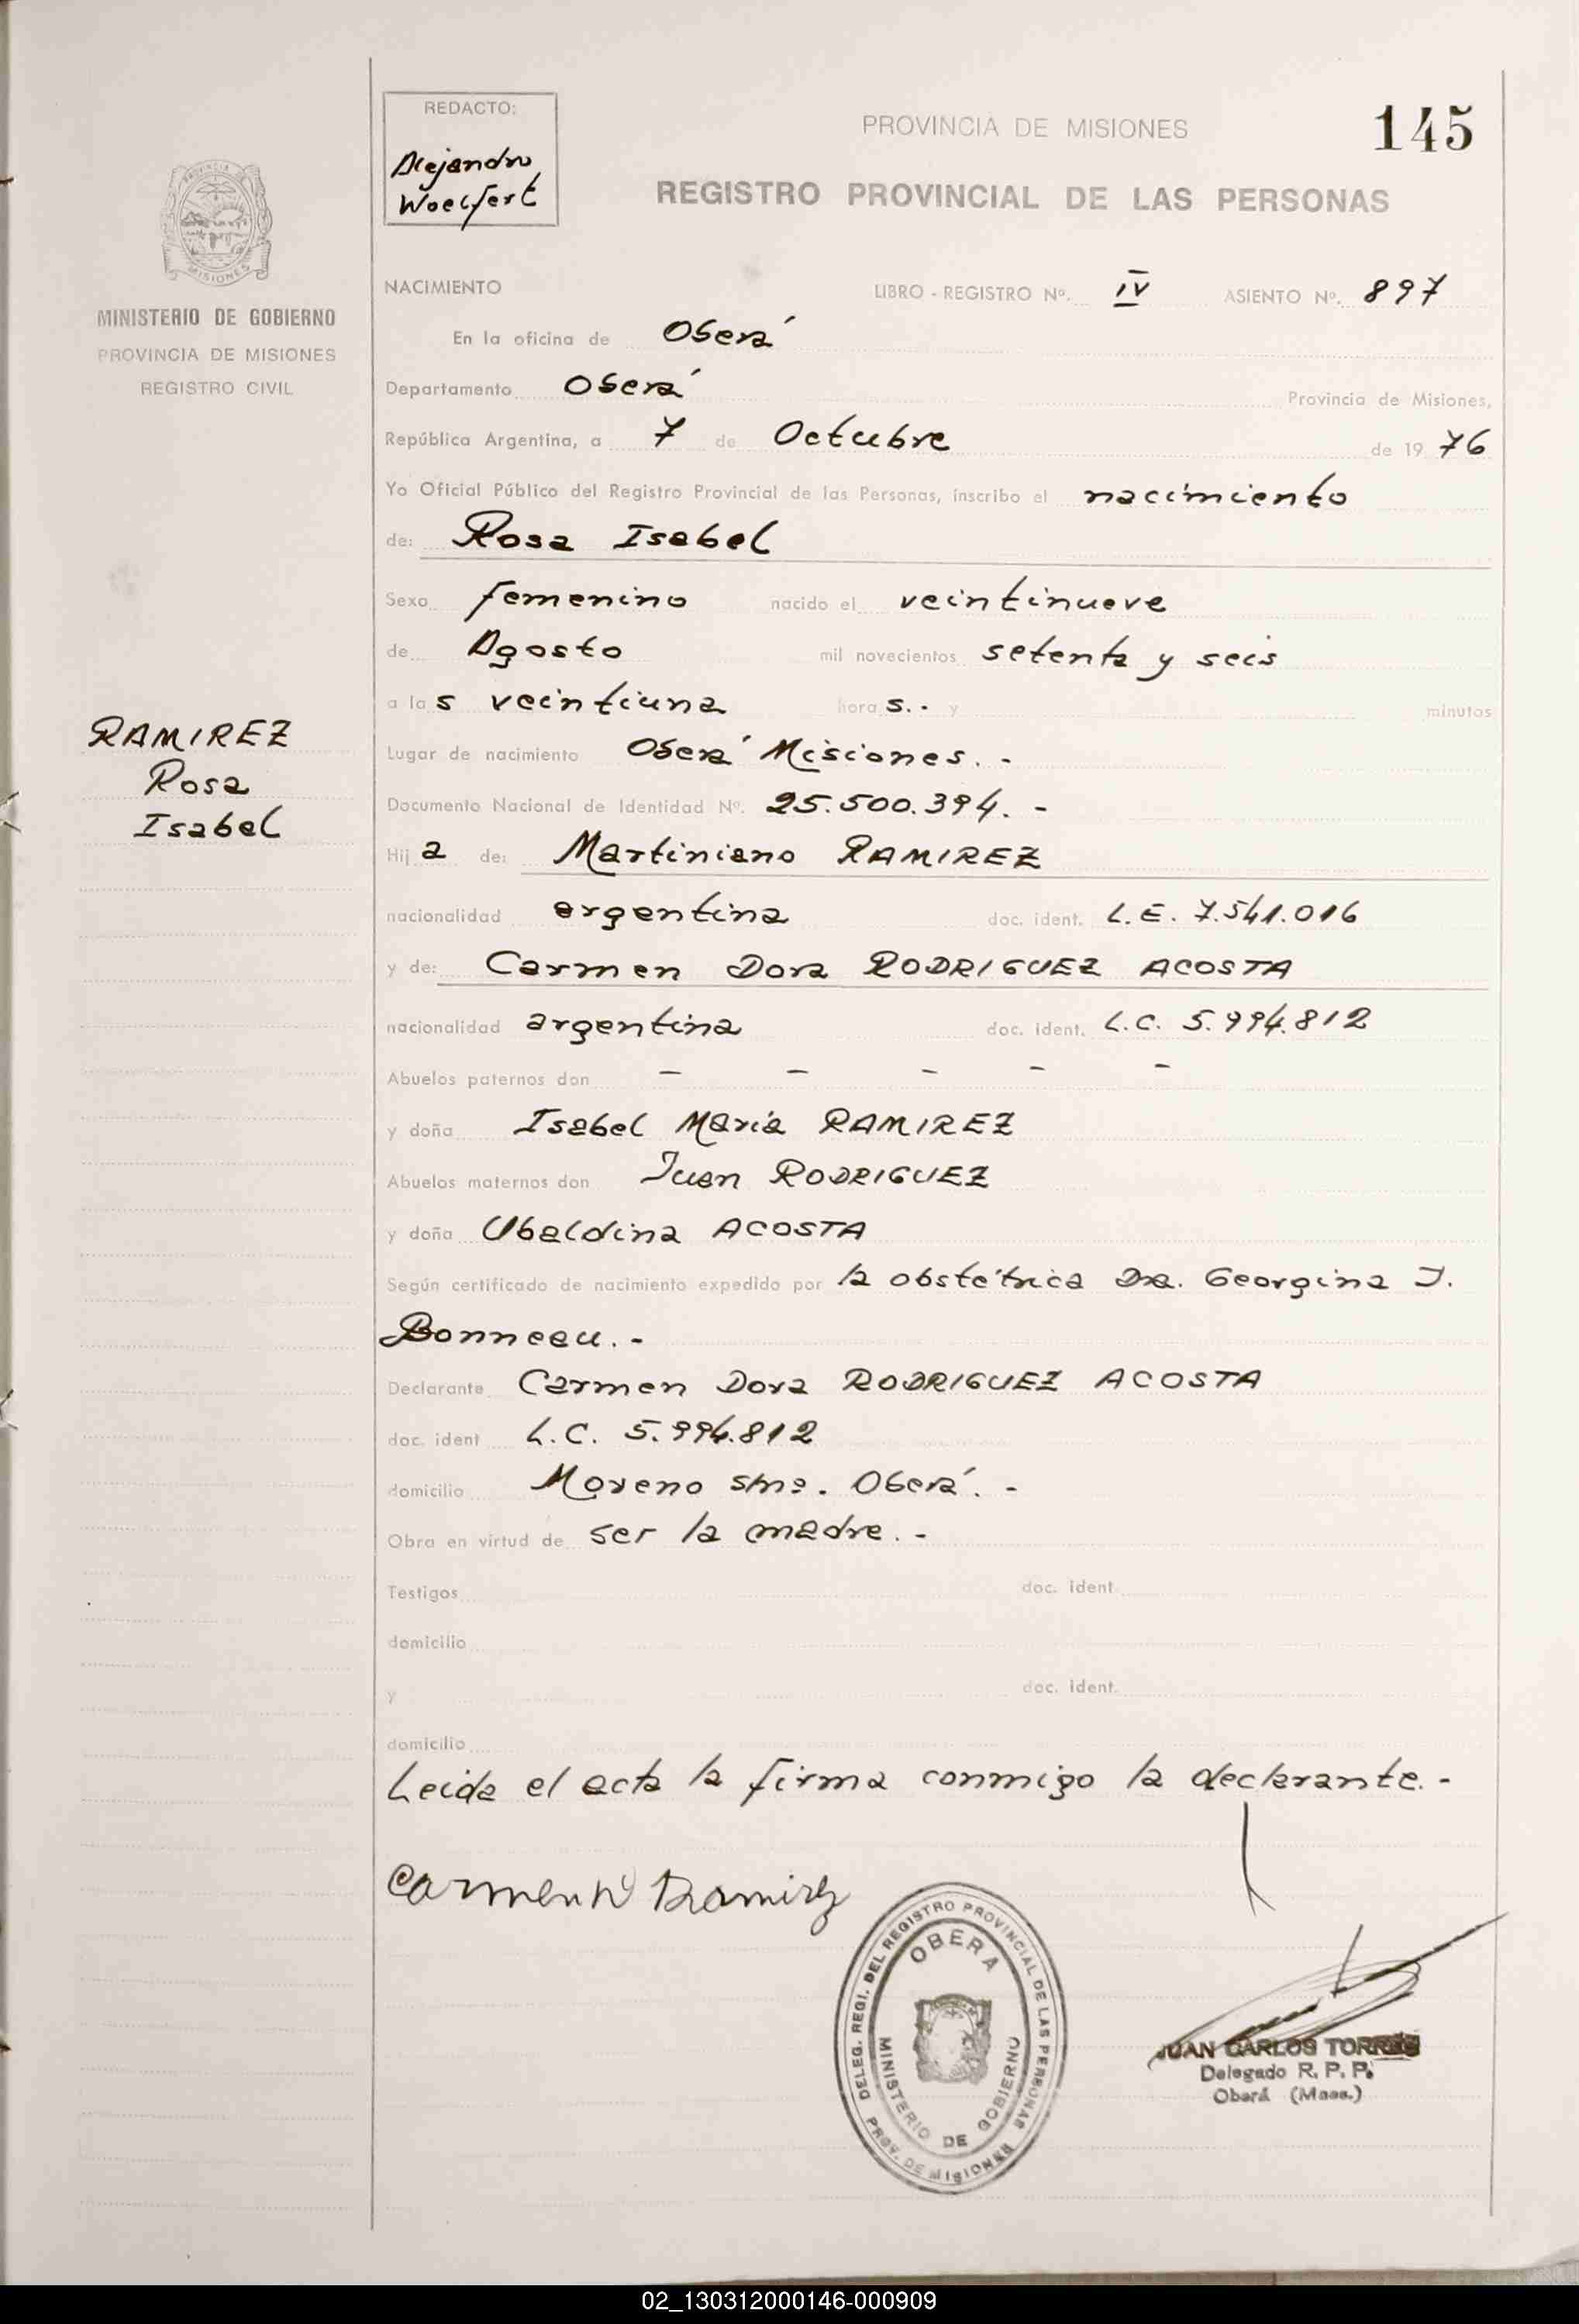 REDACTO:
Alejandro
Woelfert
PROVINCIA DE MISIONES
145
REGISTRO PROVINCIAL DE LAS PERSONAS
MINISTERIO DE GOBIERNO
PROVINCIA DE MISIONES
REGISTRO CIVIL
NACIMIENTO LIBRO - REGISTRO Nº. IV ASIENTO Nº. 897
En la oficina de Oberá
Departamento Oberá Provincia de Misiones,
República Argentina, a 7 de Octubre de 1976
Yo Oficial Público del Registro Provincial de las Personas, inscribo el nacimiento
de: Rosa Isabel
Sexo femenino nacido el veintinueve
de Agosto mil novecientos setenta y seis
a las veintiuna horas.- y minutos
RAMIREZ
Rosa
Isabel
Lugar de nacimiento Oberá Misiones.-
Documento Nacional de Identidad Nº. 25.500.394.-
Hija de: Martiniano RAMIREZ
nacionalidad argentina doc. ident. L.E. 7.541.016
y de: Carmen Dora RODRIGUEZ ACOSTA
nacionalidad argentina doc. ident. L.C. 5.994.812
Abuelos paternos don - - - - -
y doña Isabel María RAMIREZ
Abuelos maternos don Juan RODRIGUEZ
y doña Ubaldina ACOSTA
Según certificado de nacimiento expedido por la obstétrica Dra. Georgina J.
Bonneau.-
Declarante Carmen Dora RODRIGUEZ ACOSTA
doc. ident L.C. 5.994.812
domicilio Moreno s/nº. Oberá.-
Obra en virtud de ser la madre.-
Testigos doc. ident.
domicilio
y doc. ident.
domicilio
Leida el acta la firma conmigo la declarante.-
Carmen Ramirez
DELEG. REGI. DEL REGISTRO PROVINCIAL DE LAS PERSONAS
OBERA
MINISTERIO DE GOBIERNO
PROV. DE MISIONES
JUAN CARLOS TORRES
Delegado R. P. P.
Oberá (Mnes.)
02_130312000146-000909